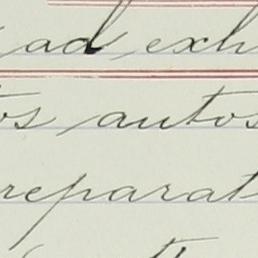 ad exh
os autos
reparat